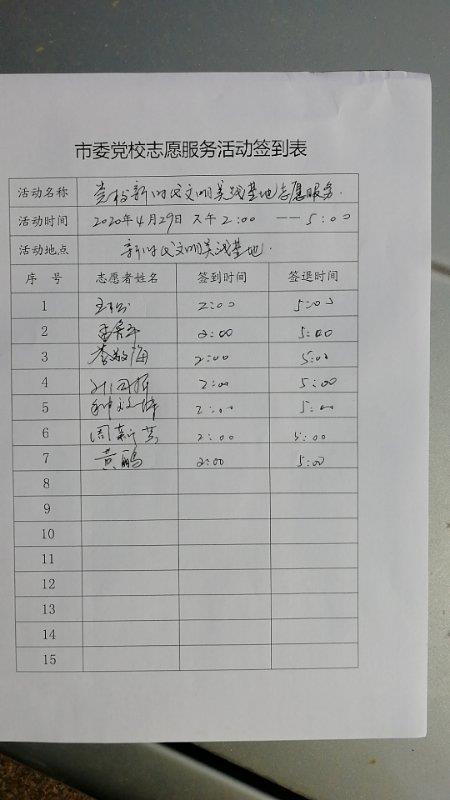 市委党校志愿服务活动签到表
活动名称 党校新时代文明实践基地志愿服务.
活动时间 2020年4月29日 下午2:00 —— 5:00
活动地点 新时代文明实践基地.
序 号 志愿者姓名 签到时间 签退时间
1 2:00 5:00
2 2:00 5:00
3 李敬海 2:00 5:00
4 2:00 5:00
5 2:00 5:00
6 周新芳 2:00 5:00
7 黄鹂 2:00 5:00
8
9
10
11
12
13
14
15